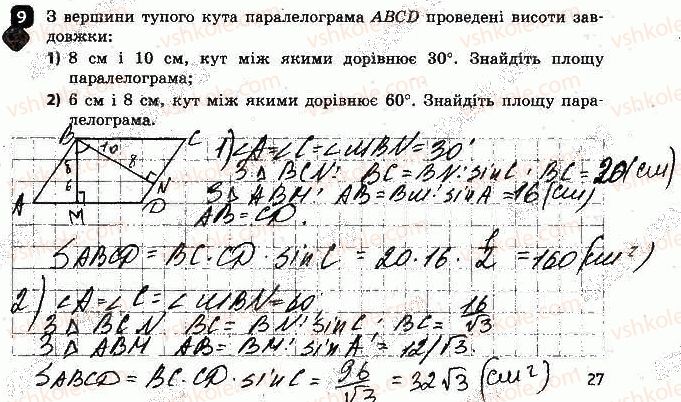 9 З вершини тупого кута паралелограма ABCD проведені висоти зав-
довжки:
1) 8 см і 10 см, кут між якими дорівнює 30°. Знайдіть площу
паралелограма;
2) 6 см і 8 см, кут між якими дорівнює 60°. Знайдіть площу пара-
лелограма.
B C
10
8 8
6 N
A M D
1) ∠A=∠C=∠MBN=30°
З △ BCN: BC=BN:sinC; BC=20(см)
З △ ABM: AB=BM:sinA=16(см)
AB=CD.
SABCD=BC·CD·sinC=20·16·1/2=160(см²)
2) ∠A=∠C=∠MBN=60
З △ BCN BC=BN:sinC; BC=16/√3
З △ ABM AB=BM:sinA=12/√3.
SABCD=BC·CD·sinC=96/√3=32√3(см²)
27